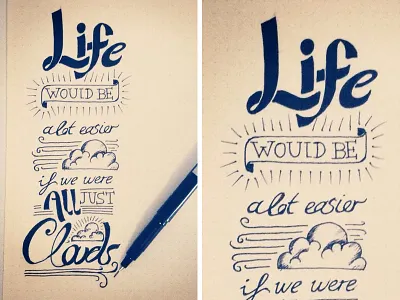 Life
WOULD BE
a lot easier
if we were
All JUST
Clouds,
Life
WOULD BE
a lot easier
if we were